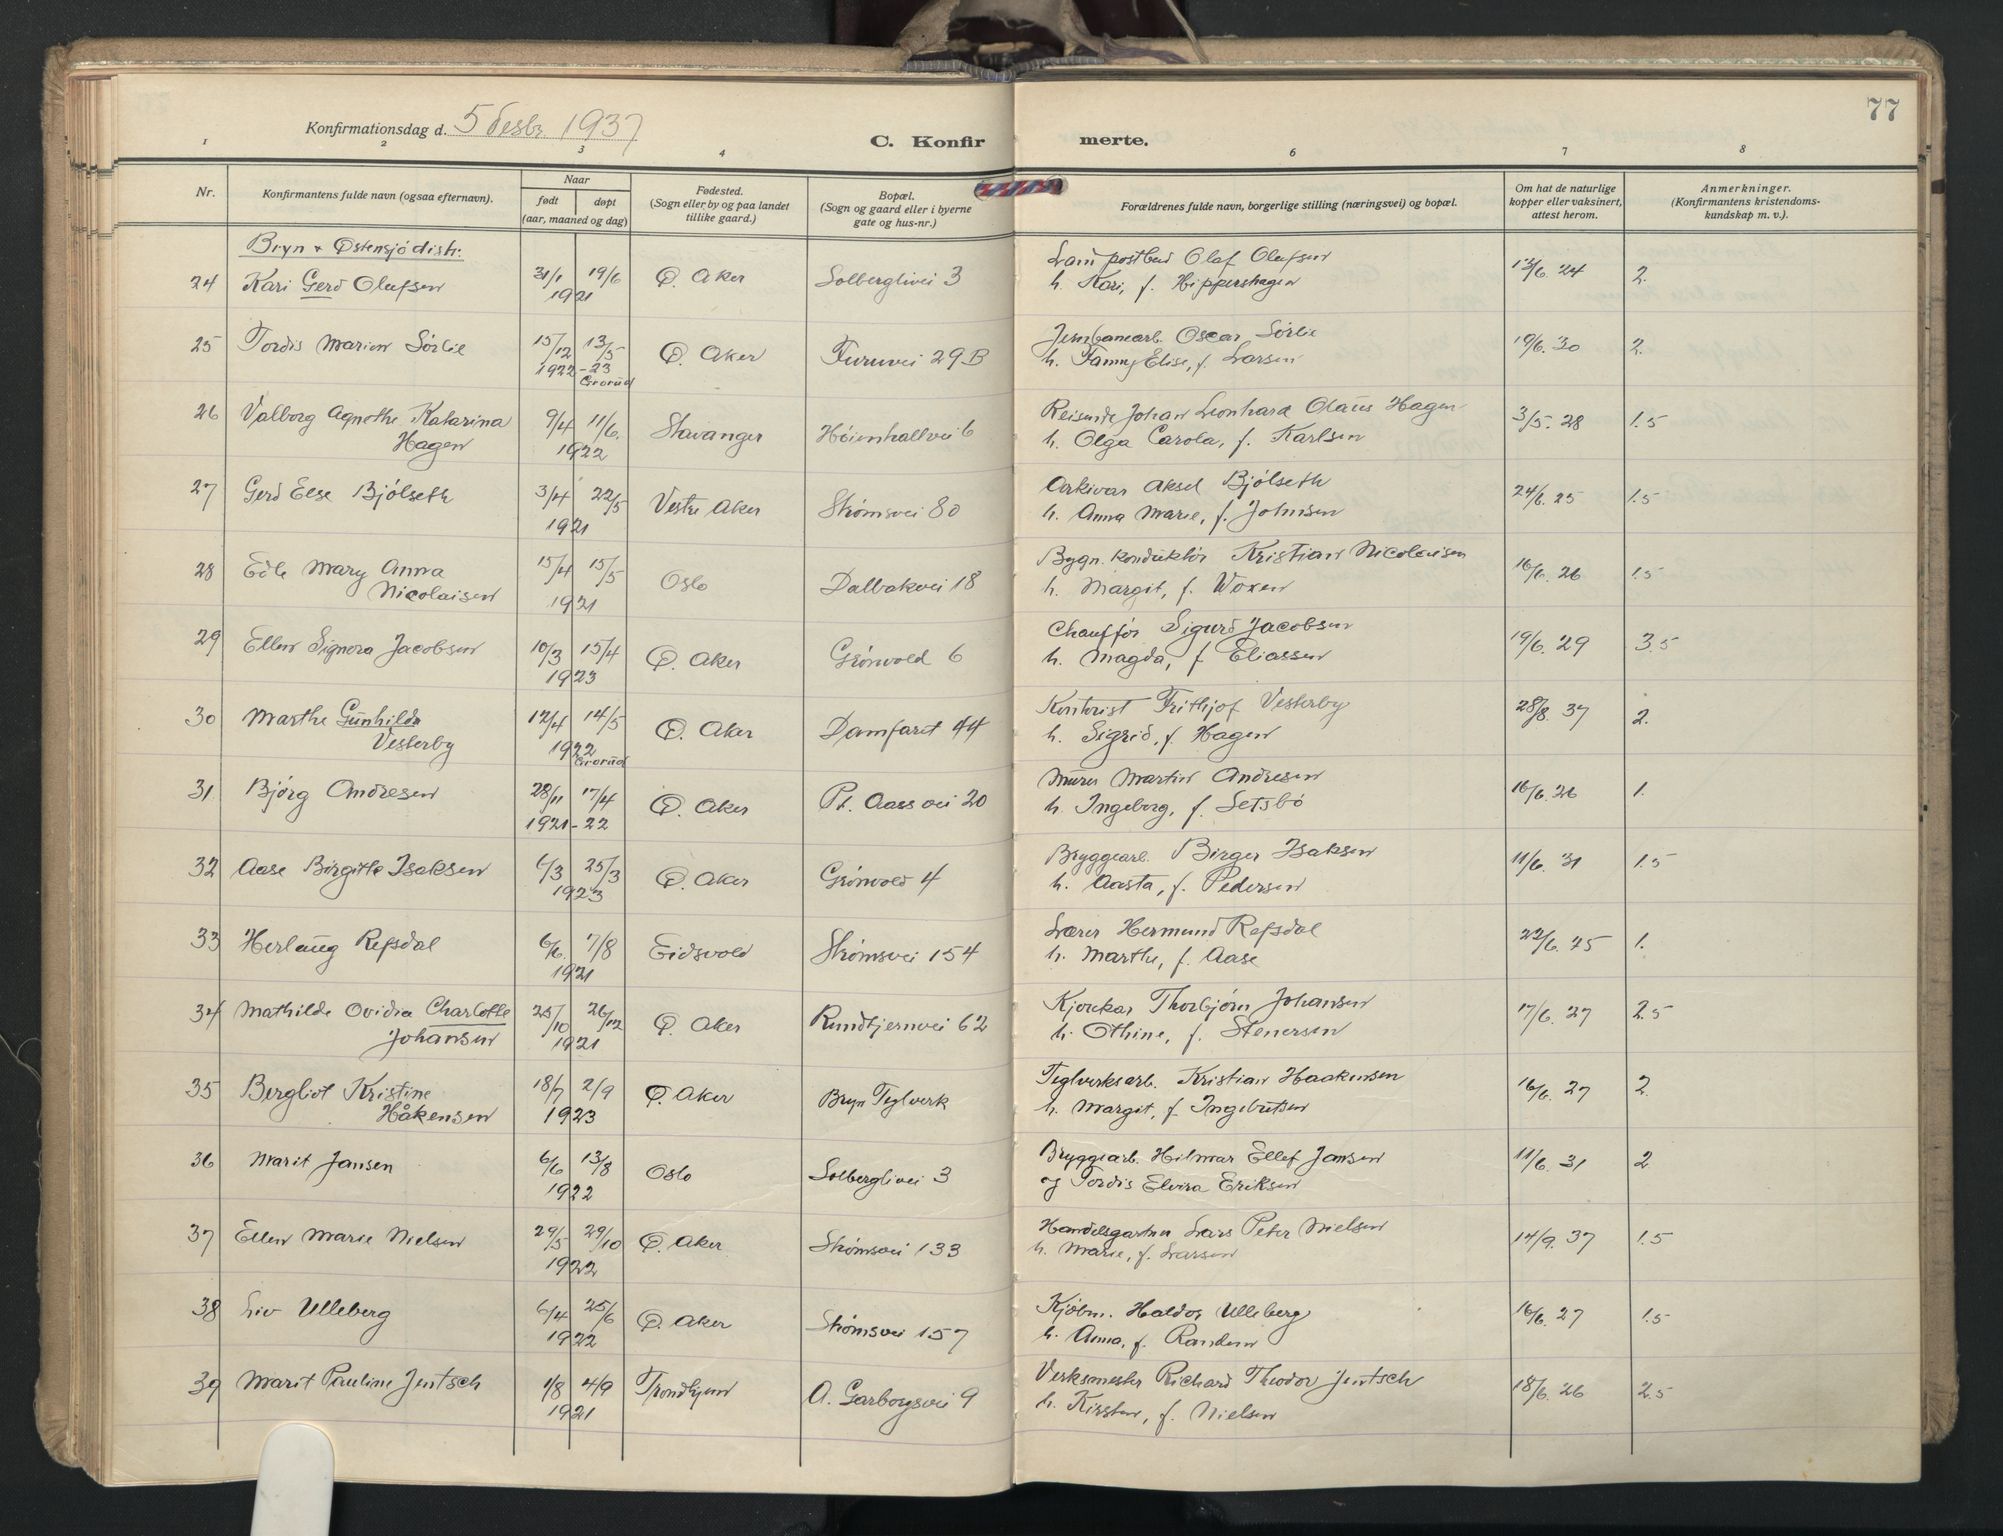 77
Konfirmationsdag d. 5 desbr 1937
C. Konfirmerte.
1 2 3 4 6 7 8
Nr.
Konfirmantens fulde navn (ogsaa efternavn).
Naar
født døpt
(aar, maaned og dag)
Fødested.
(Sogn eller by og paa landet
tillike gaard.)
Bopæl.
(Sogn og gaard eller i byerne
gate og hus-nr.)
Forældrenes fulde navn, borgerlige stilling (næringsvei) og bopæl.
Om hat de naturlige
kopper eller vaksinert,
attest herom.
Anmerkninger.
(Konfirmantens kristendoms-
kundskap m. v.).
Bryn & Østensjø distr.
24 Kari Gerd Olufsen 31/1 19/6 1921 Ø. Aker Solberglivei 3
Landpostbud Olaf Olufsen
h. Kari, f. Hippershagen 13/6. 24 2.
25 Tordis Marion Sørlie 15/12 13/5
1922 - 23
Grorud
Ø. Aker Furuvei 29.B
Jernbanearb. Oscar Sørlie
h. Fanny Elise, f. Larsen 19/6. 30 2.
26 Valborg Agnethe Katarina
Hagen 9/4 11/6. 1922 Stavanger Høienhallvei 6
Reisende Johan Leonhard Olaus Hagen
h. Olga Carola, f. Karlsen 3/5. 28 1.5
27 Gerd Else Bjølseth 3/4 22/5 1921 Vestre Aker Strømsvei 80
Arkivar Aksel Bjølseth
h. Anna Marie, f. Johnsen 24/6. 25 1.5
28 Edle Mary Anna
Nicolaisen 15/4 15/5 1921 Oslo Dalbakvei 18
Bygn. konduktør Kristian Nicolaisen
h. Margit, f. Woxen 16/6. 26 1.5
29 Ellen Signora Jacobsen 10/3 15/4 1923 Ø. Aker Grønvold 6
Chauffør Sigurd Jacobsen
h. Magda, f Eliassen 19/6. 29 3.5
30 Marthe Gunhilda
Vesterby 12/4 14/5 1922
Grorud
Ø. Aker Damfaret 44
Kontorist Frithjof Vesterby
h. Sigrid, f. Hagen 28/8. 37 2.
31 Bjørg Andresen 28/11 17/4
1921 - 22 Ø. Aker P. Aass vei 20
Murer Martin Andresen
h. Ingeborg, f. Setsbø 16/6. 26 1.
32 Aase Birgitte Isaksen 6/3 25/3 1923 Ø. Aker Grønvold 4
Bryggearb. Birger Isaksen
h. Aasta, f. Pedersen 11/6. 31 1.5
33 Herlaug Refsdal 6/6. 7/8 1921 Eidsvold Strømsvei 154
Lærer Hermund Refsdal
h. Marthe, f. Aase 22/6. 25 1.
34 Mathilde Ovidia Charlotte
Johansen 25/10 26/12 1921 Ø. Aker Rundtjernvei 62
Kjørekar Thorbjørn Johansen
h. Othine, f. Stenersen 17/6. 27 2.5
35 Bergliot Kristine
Håkensen 18/7 2/9 1923 Ø. Aker Bryn Teglverk
Teglverksarb. Kristian Haakensen
h. Margit, f Ingebretsen 16/6. 27 2.
36 Marit Jansen 6/6 13/8 1922 Oslo Solberglivei 3
Bryggearb. Hilmar Ellef Jansen
og Tordis Elvira Eriksen 11/6. 31 2.
37 Ellen Marie Nielsen 29/5 29/10 1922 Ø. Aker Strømsvei 133
Handelsgartner Lars Peter Nielsen
h. Marie, f. Larsen 14/9. 37 1.5
38 Liv Ulleberg 6/4 25/6 1922 Ø. Aker Strømsvei 157
Kjøbm. Haldor Ulleberg
h. Anna, f. Randem 16/6. 27 1.5
39 Marit Pauline Jentsch 1/8 4/9 1921 Trondhjem A. Garborgsvei 9
Verksmester Richard Theodor Jentsch
h. Kirsten, f. Nielsen 18/6. 26 2.5